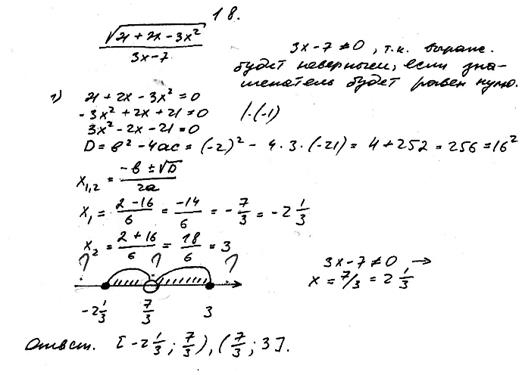 18.
√21+2x-3x² / 3x-7
3x-7≠0, т.к. выраж.
будет неверным, если зна-
менатель будет равен нулю.
1) 21+2x-3x²=0
-3x²+2x+21=0 |·(-1)
3x²-2x-21=0
D=b²-4ac=(-2)²-4·3·(-21)=4+252=256=16²
x₁,₂=-b±√D / 2a
x₁=2-16/6=-14/6=-7/3=-2 1/3
x₂=2+16/6=18/6=3
3x-7≠0 →
x=7/3=2 1/3
-2 1/3 7/3 3
Ответ. [-2 1/3; 7/3), (7/3; 3].